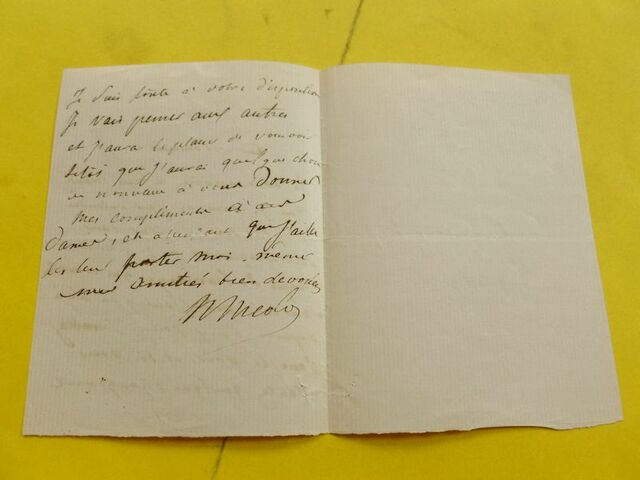 Je suis toute à votre disposition
Je vais penser aux autres
et j'aurai le plaisir de vous voir
sitôt que j'aurai quelque chose
de nouveau à vous donner
mes compliments à ces
Dames, et attendant que j'aille
les leur porter moi-même
mes amitiés bien dévouées